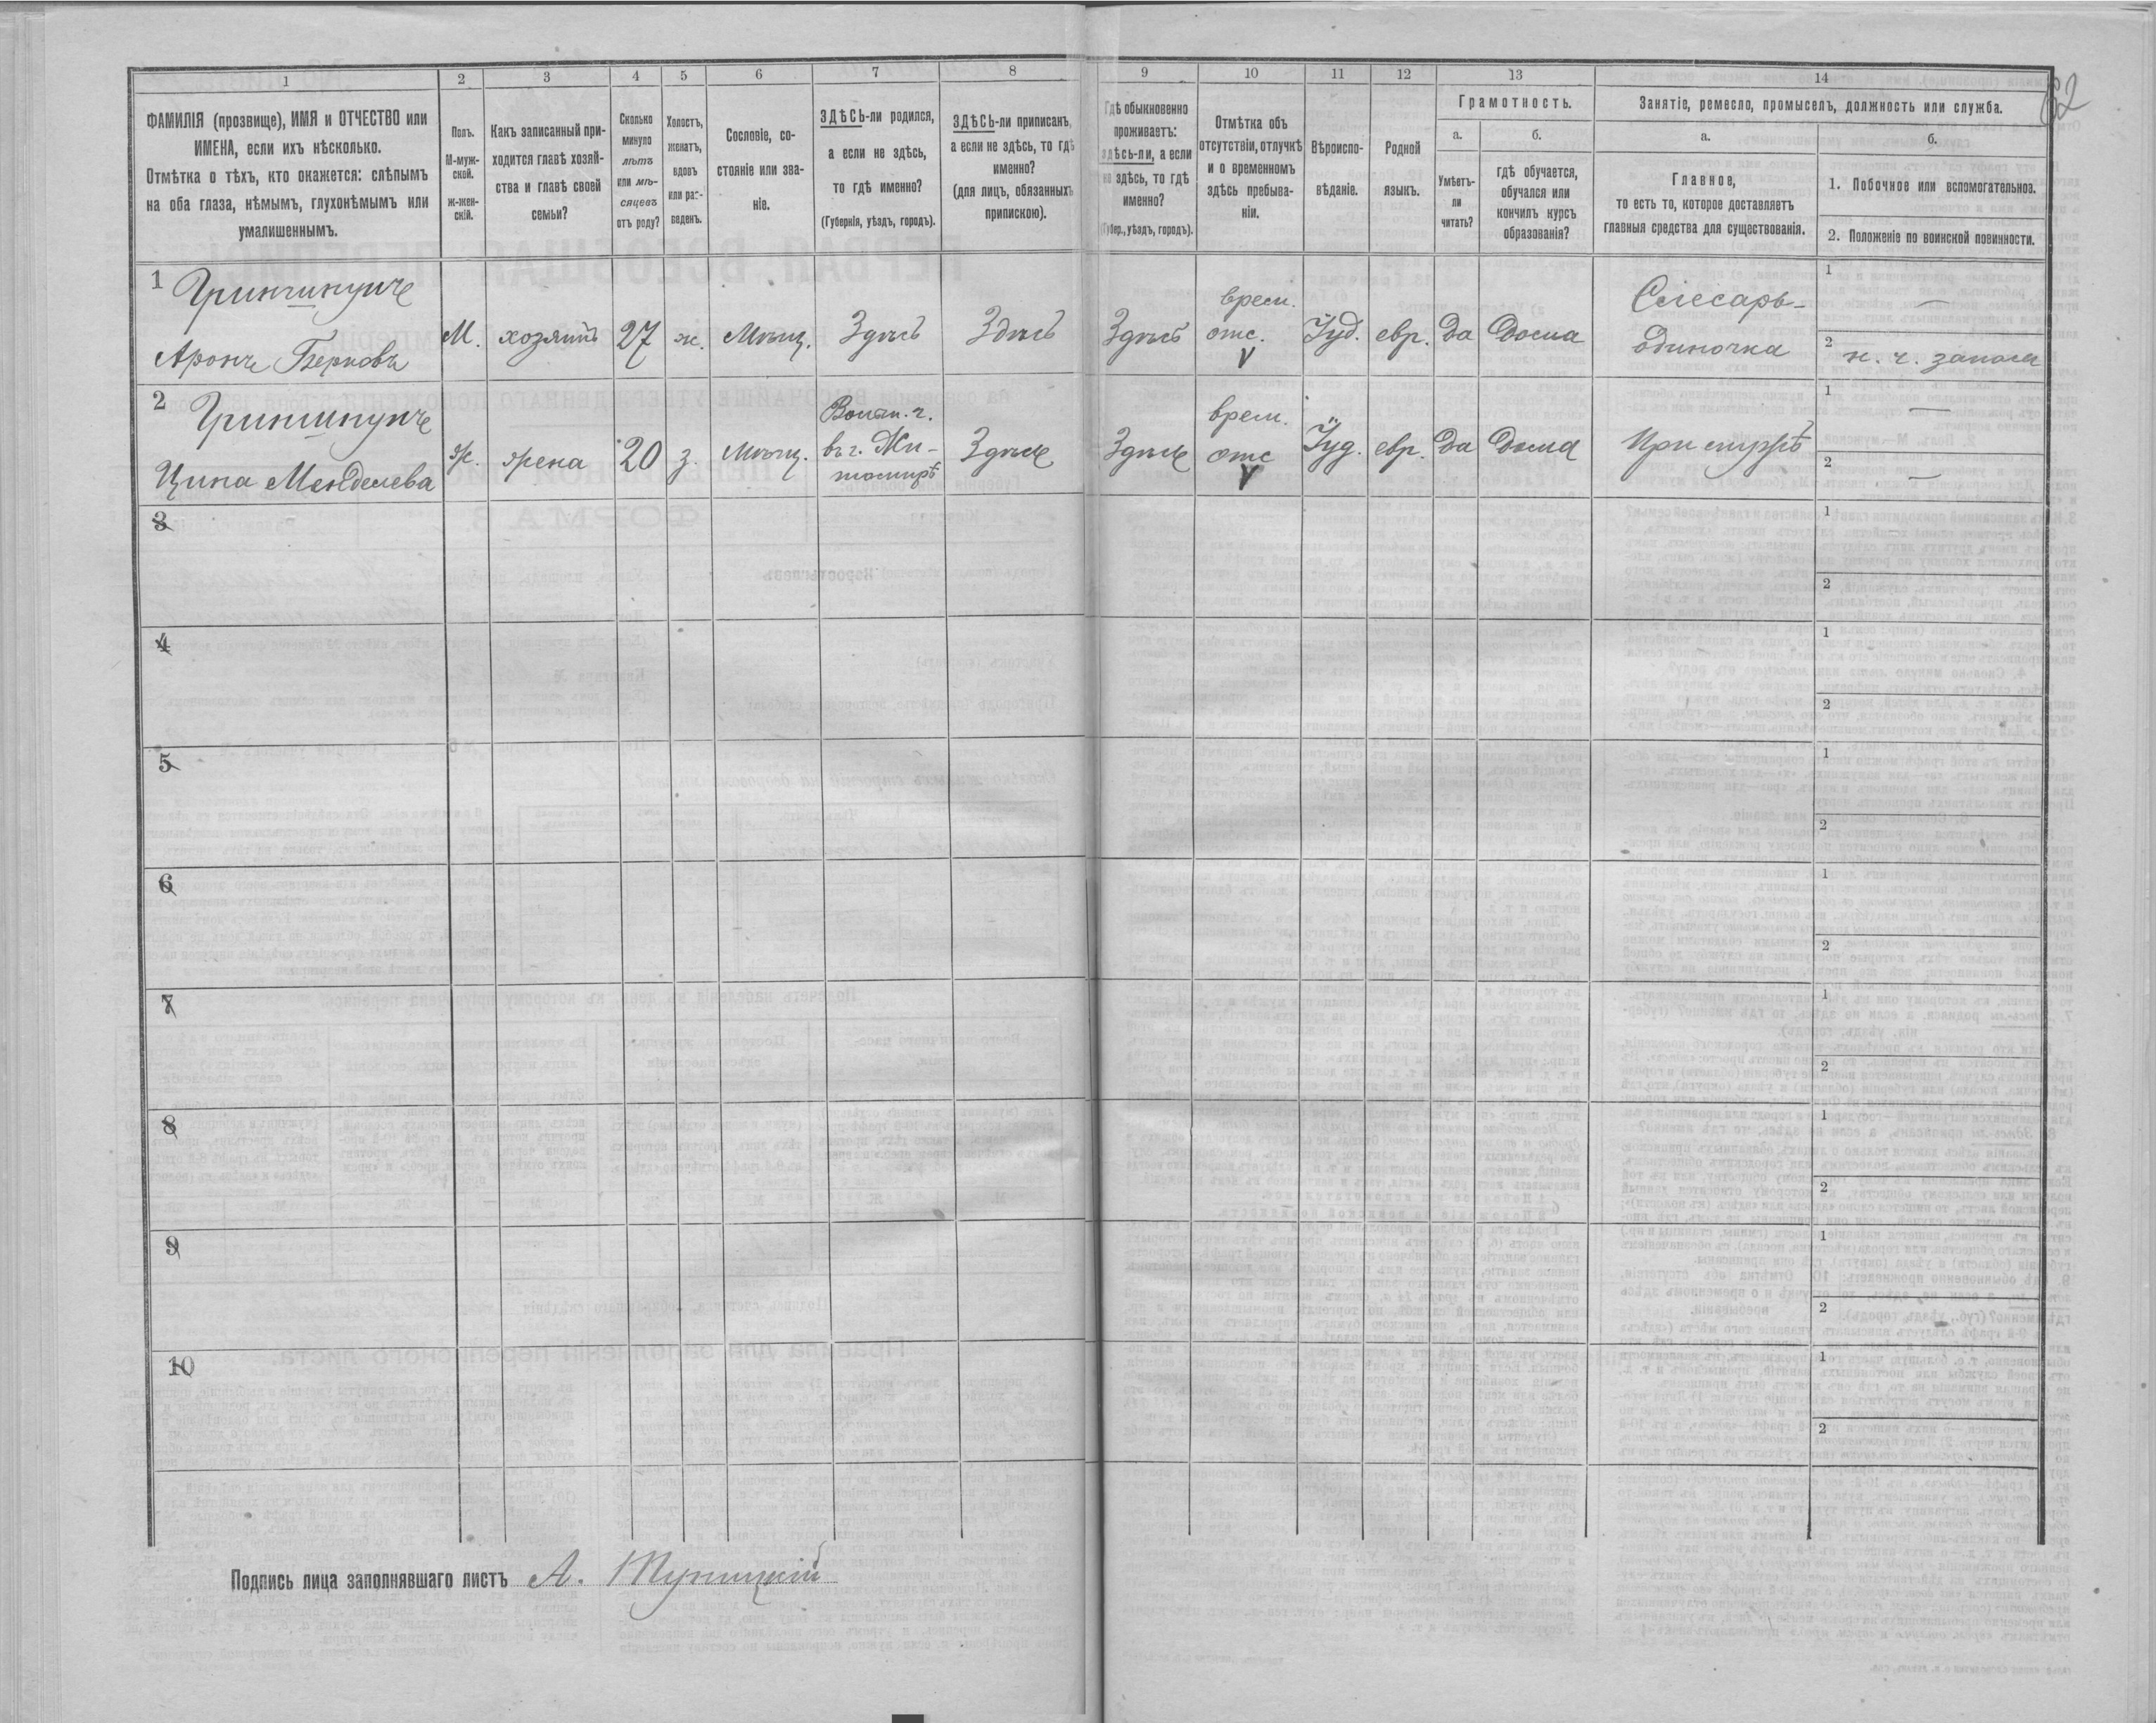 62
1 2 3 4 5 6 7 8 9 10 11 12 13 14
ФАМИЛІЯ (прозвище), ИМЯ и ОТЧЕСТВО или
ИМЕНА, если ихъ нѣсколько.
Отмѣтка о тѣхъ, кто окажется: слѣпымъ
на оба глаза, нѣмымъ, глухонѣмымъ или
умалишеннымъ.
Полъ.
М-муж-
ской.
Ж-жен-
скій.
Какъ записанный при-
ходится главѣ хозяй-
ства и главѣ своей
семьи?
Сколько
минуло
лѣтъ
или мѣ-
сяцевъ
отъ роду?
Холостъ,
женатъ,
вдовъ
или раз-
веденъ.
Сословіе, со-
стояніе или зва-
ніе.
ЗДѢСЬ-ли родился,
а если не здѣсь,
то гдѣ именно?
(Губернія, уѣздъ, городъ).
ЗДѢСЬ-ли приписанъ,
а если не здѣсь, то гдѣ
именно?
(для лицъ, обязанныхъ
припискою).
Гдѣ обыкновенно
проживаетъ:
здѣсь-ли, а если
не здѣсь, то гдѣ
именно?
(Губер., уѣздъ, городъ).
Отмѣтка объ
отсутствіи, отлучкѣ
и о временномъ
здѣсь пребыва-
ніи.
Вѣроиспо-
вѣданіе.
Родной
языкъ.
Грамотность.
а.
Умѣетъ-
ли
читать?
б.
гдѣ обучается,
обучался или
кончилъ курсъ
образованія?
Занятіе, ремесло, промыселъ, должность или служба.
а.
Главное,
то есть то, которое доставляетъ
главныя средства для существованія.
б.
1. Побочное или вспомогательное.
2. Положеніе по воинской повинности.
1
Аронъ Берковъ
М. хозяинъ 27 ж. Мѣщ. Здѣсь Здѣсь Здѣсь
врем.
отс.
Іуд. евр. Да Дома
Слесарь-
одиночка
1 —
2 н. ч. запаса
2
Цина Менделева
ж. жена 20 з. Мѣщ.
Волын. г.
въ г. Жи-
томирѣ
Здѣсь Здѣсь
врем.
отс
Іуд. евр. Да Дома
При мужѣ
1 —
2 —
3
1
2
4
1
2
5
1
2
6
1
2
7
1
2
8
1
2
9
1
2
10
1
2
Подпись лица заполнявшаго листъ А.